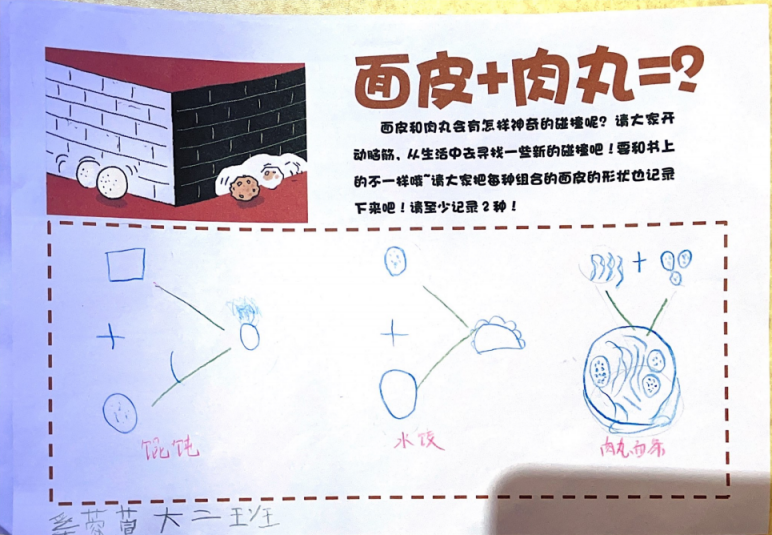 面皮+肉丸=?
面皮和肉丸会有怎样神奇的碰撞呢？请大家开
动脑筋，从生活中去寻找一些新的碰撞吧！要和书上
的不一样哦~请大家把每种组合的面皮的形状也记录
下来吧！请至少记录2种！
馄饨
水饺
肉丸面条
大二班